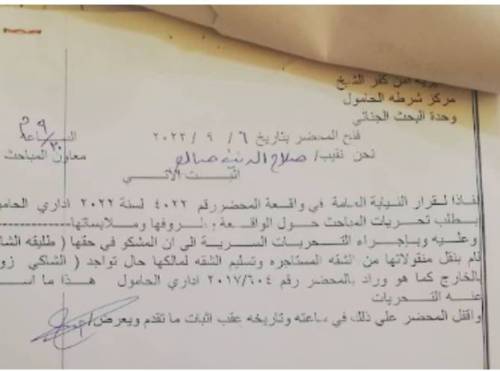 مديرية امن كفر الشيخ
مركز شرطه الحامول
وحدة البحث الجنائي
فتح المحضر بتاريخ ٦ / ٩ / ٢٠٢٢ الساعة ٩ م
نحن نقيب/ صلاح الدين معاون المباحث
اثبت الآتي
نفاذا لقرار النيابة العامة في واقعة المحضر رقم ٤٠٢٢ لسنة ٢٠٢٢ اداري الحامول
بطلب تحريات المباحث حول الواقعة وظروفها وملابساتها
وعليه وبإجراء التحريات السرية الى ان المشكو في حقها ( طليقه الشا
قام بنقل منقولاتها من الشقه المستاجره وتسليم الشقه لمالكها حال تواجد ( الشاكي زو
بالخارج كما هو وراد بالمحضر رقم ٢٠١٧/٦٠٤ اداري الحامول هذا ما اسـ
عنه التحريات
واقفل المحضر علي ذلك في ساعته وتاريخه عقب اثبات ما تقدم ويعرض/